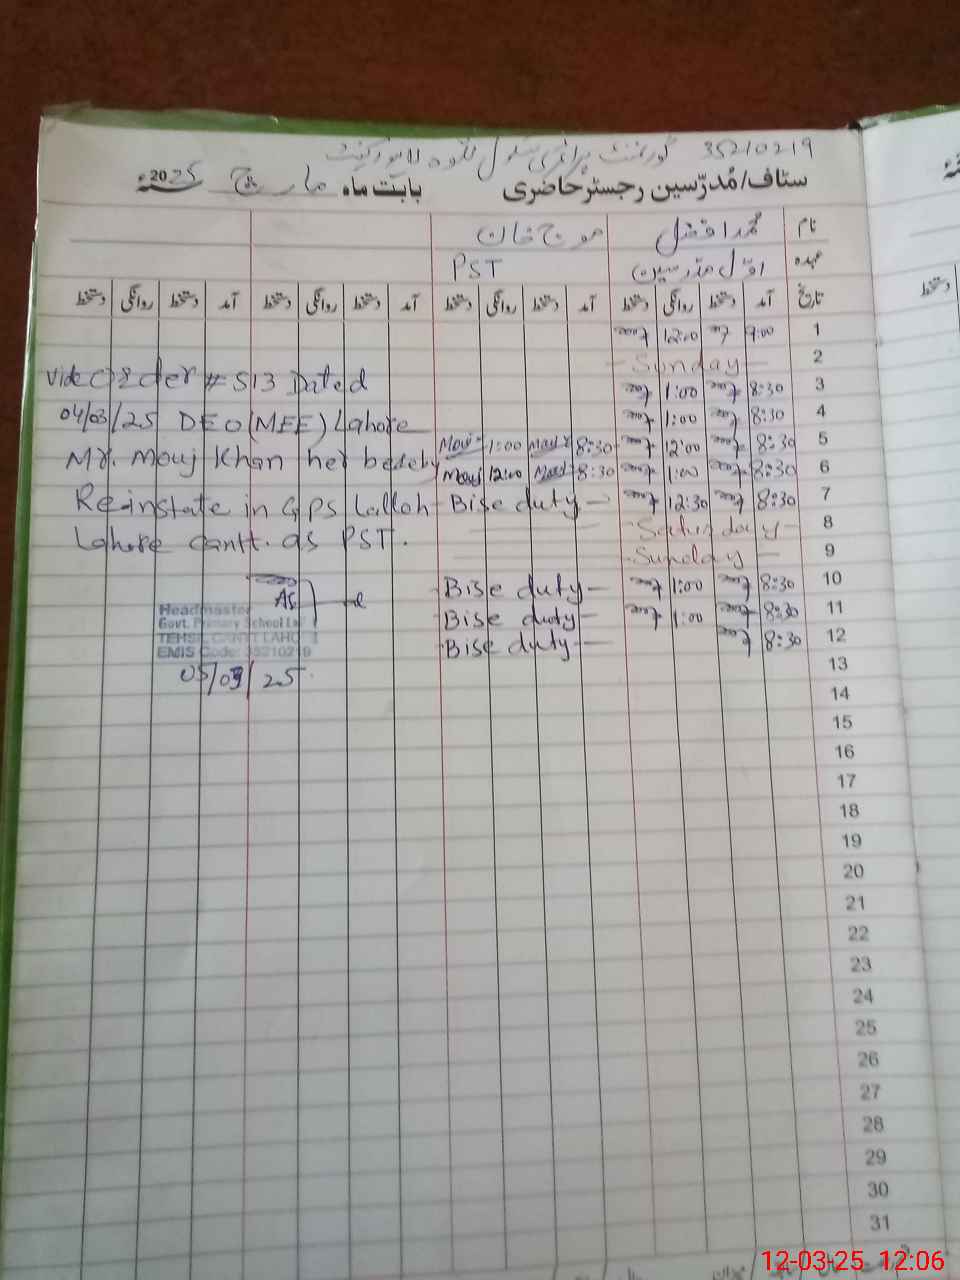 35210219 گورنمنٹ پرائمری سکول للوہ لاہور کینٹ
سٹاف/مُدرّسین رجسٹر حاضری بابت ماہ مارچ 2025ء
نام محمد افضل موج خان
عہدہ اوّل مدرسین PST
تاریخ آمد دستخط روانگی دستخط آمد دستخط روانگی دستخط آمد دستخط روانگی دستخط آمد دستخط روانگی دستخط
1 9:00 12:00
2 Sunday
3 8:30 1:00
4 8:30 1:00
5 8:30 12:00 8:30 Mouj 1:00 Mouj
6 8:30 1:00 8:30 Mouj 12:00 Mouj
7 8:30 12:30 Bise duty
8 Saturday
9 Sunday
10 8:30 1:00 Bise duty
11 8:30 1:00 Bise duty
12 8:30 Bise duty
13
14
15
16
17
18
19
20
21
22
23
24
25
26
27
28
29
30
31
Vide Order # 513 Dated
04/03/25 DEO (MEE) Lahore
Mr. Mouj Khan her bedeby
Reinstate in GPS Lalloh
Lahore Cantt. as PST.
Headmaster
Govt. Primary School
TEHSIL CANTT LAHO
EMIS Code: 35210219
05/03/25
12-03-25 12:06